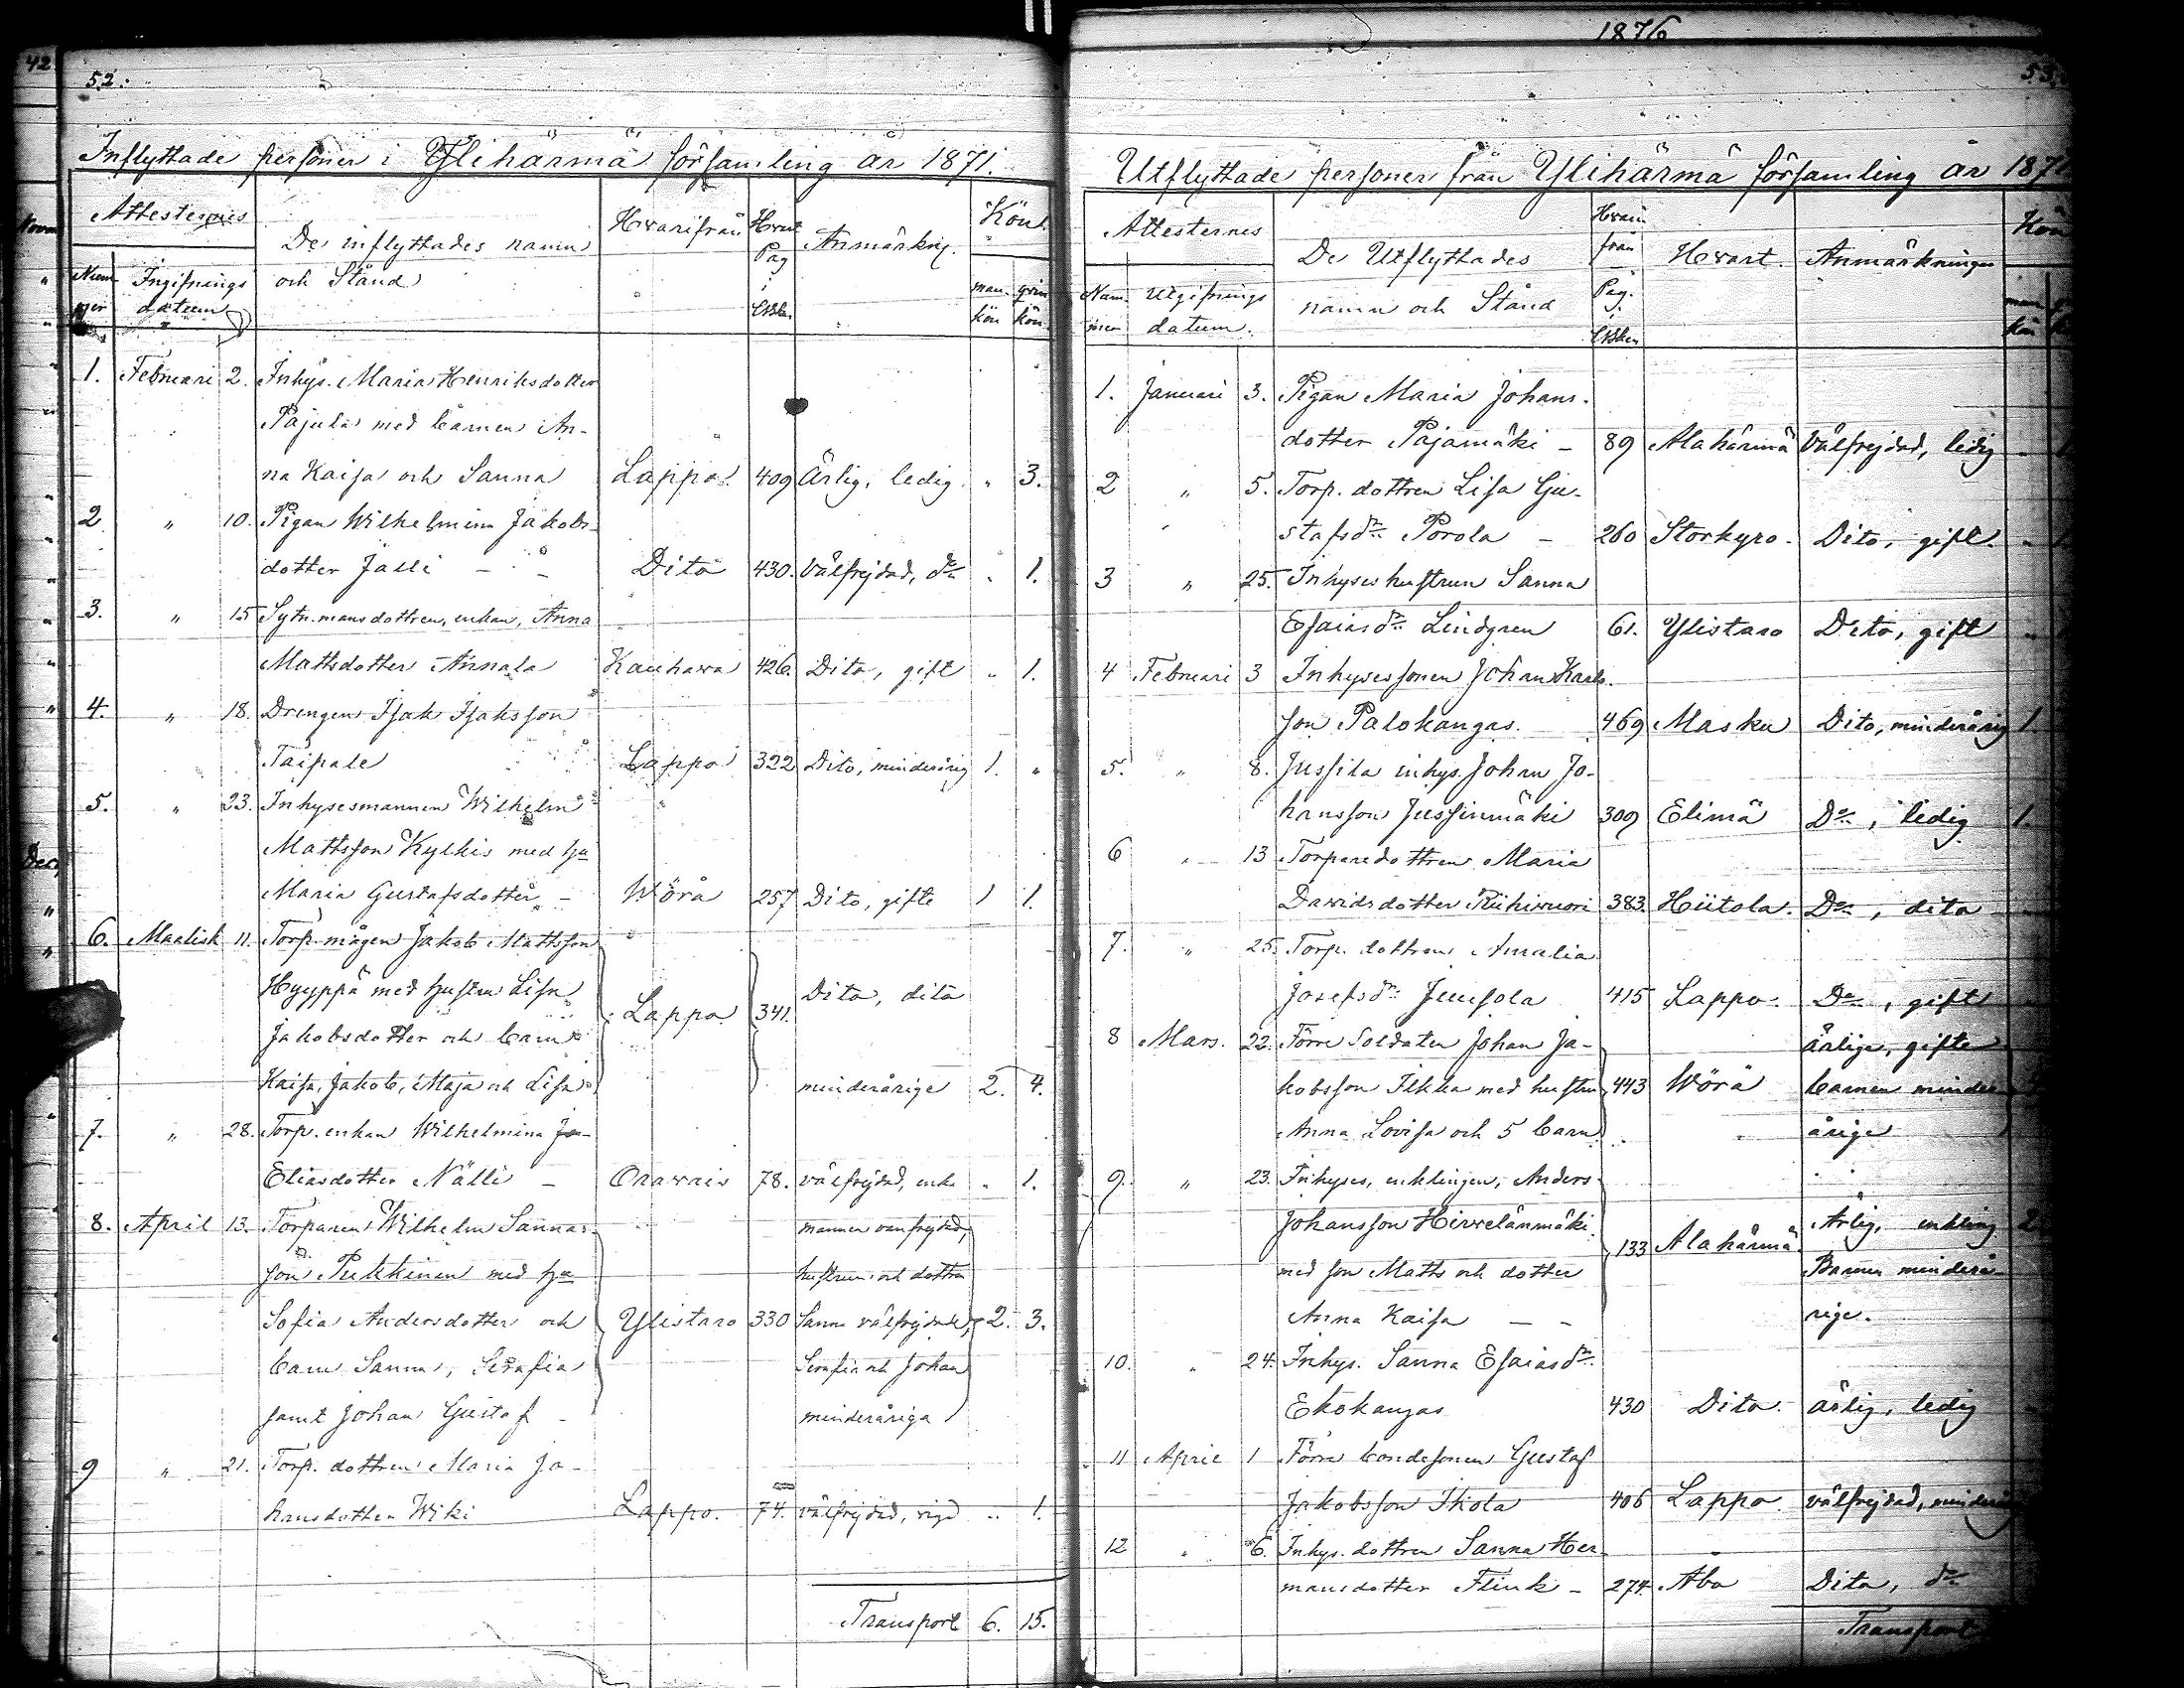 42.
52.
Inflyttade personer i Ylihärmä församling år 1871.
Attesternes
De inflyttades namn
och Stånd
Hvarifrån
Hvart
Pag
i
Anmärkng.
Kön
Ingifnings
datum
man
kön
qvin
kön
1. Februari 2. Inhys. Maria Henriksdotter
Pajula med barnen An-
na Kaisa och Sanna Lappo. 409 Ärlig, ledig. " 3.
2 " 10. Pigan Wilhelmina Jakobs-
dotter Jälli - - Dito 430. Välfrejdad, do " 1.
3. " 15 Sytn.mansdottren, enkan, Anna
Mattsdotter Annala Kauhava 426. Dito, gift " 1.
4. " 18. Drengen Isak Isaksson
Taipale Lappo 322 Dito, minderårig 1. "
5. " 23. Inhysesmannen Wilhelm
Mattsson Kylkis med hu
Maria Gustafsdotter - Wörå 257 Dito, gifte 1 1.
6. Maalisk 11. Torp.mågen Jakob Mattsson
Hyyppä med hustru Lisa
Jakobsdotter och barn
Kaisa, Jakob, Maja och Lisa
Lappo 341. Dito, dito
minderårige 2. 4.
7. " 28. Torp.enkan Wilhelmina Jo-
Eliasdotter Nälli - Oravais 78. välfrejdad, enka " 1.
8. April 13. Torparen Wilhelm Sannas-
son Pukkinen med hu
Sofia Andersdotter och
barn Sanna, Serafia
samt Johan Gustaf -
Ylistaro 330
mannen vanfrejdad,
hustrun och dottren
Sanna välfrejdade, 2. 3.
Serafia och Johan
minderåriga
9 " 21. Torp. dottren Maria Jo-
hansdotter Wiki Lappo. 74. välfrejdad, " 1.
Transport 6. 15.
1876
53.
Utflyttade personer från Ylihärmä församling år 1871
Attesternes
Utgifnings
datum.
De Utflyttades
namn och Stånd
från
Pag.
Hvart.
Anmärkningar
Kön
man
kön
1. Januari 3. Pigan Maria Johans-
dotter Pajamäki - 89 Alahärmä Välfrejdad, ledig
2 " 5. Torp. dottren Lisa Gu-
stafsdr Porola - 260 Storkyro. Dito, gift.
3 " 25. Inhyseshustrun Sanna
Esaiasdr Lindgren 61. Ylistaro Dito, gift
4 Februari 3 Inhysessonen Johan Karls-
son Palokangas. 469 Masku Dito, minderårig 1.
5. " 8. Jussila inhys. Johan Jo-
hansson Jussinmäki 309 Elimä Do, ledig 1.
6 " 13 Torparedottren Maria
Davidsdotter Riihivuori 383. Hiitola. Do, dito
7. " 25. Torp. dottren Amalia
Josefsdr Juusola 415 Lappo. Do, gift
8 Mars. 22. Förre Soldaten Johan Ja-
kobsson Ikkla med hustru
Anna Lovisa och 5 barn
443 Wörå
ärlige, gifte
barnen minder-
årige
9. " 23. Inhyses, enklingen, Anders
Johansson Hirvelänmäki
med son Matts och dotter
Anna Kaisa - -
133 Alahärmä
Ärlig, enkling 2
Barnen minderå-
rige.
10. " 24. Inhys. Sanna Esaiasdr
Ekokangas 430 Dito. ärlig, ledig
11 April 1 Förre bondesonen Gustaf
Jakobsson Ikola 406 Lappo. välfrejdad, minderårig
12 " 6. Inhys. dottren Sanna Her-
mansdotter Flink - 274. Åbo Dito, do
Transport